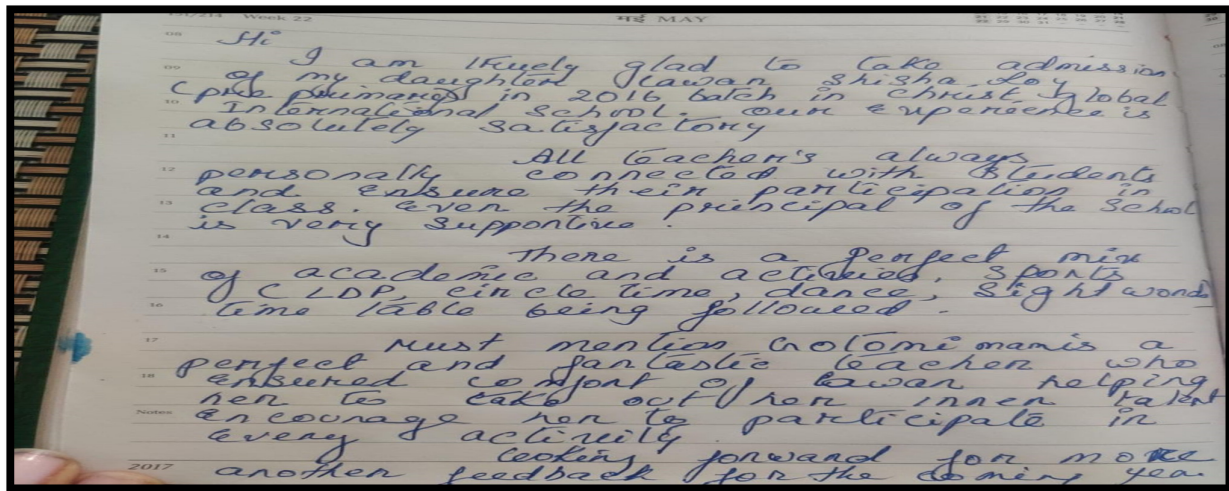 Week 22
मई MAY
Hi
I am truely glad to take admission
of my daughter Lawan Shisha Roy
(pre primary) in 2016 batch in Christ Global
International School. our experience is
absolutely satisfactory
All teacher's always
personally connected with students
and ensure their participation in
class. Even the principal of the School
is very supportive.
There is a perfect mix
of academic and activies, sports
of CLDP, circle time, dance, sight words
time table being followed.
Must mention mam is a
perfect and fantastic teacher who
ensured comfort of Lawan helping
her to take out her inner talent
encourage her to participate in
every activity.
Looking forward for more
another feedback for the coming year
09
10
11
12
13
14
15
16
17
18
Notes
2017